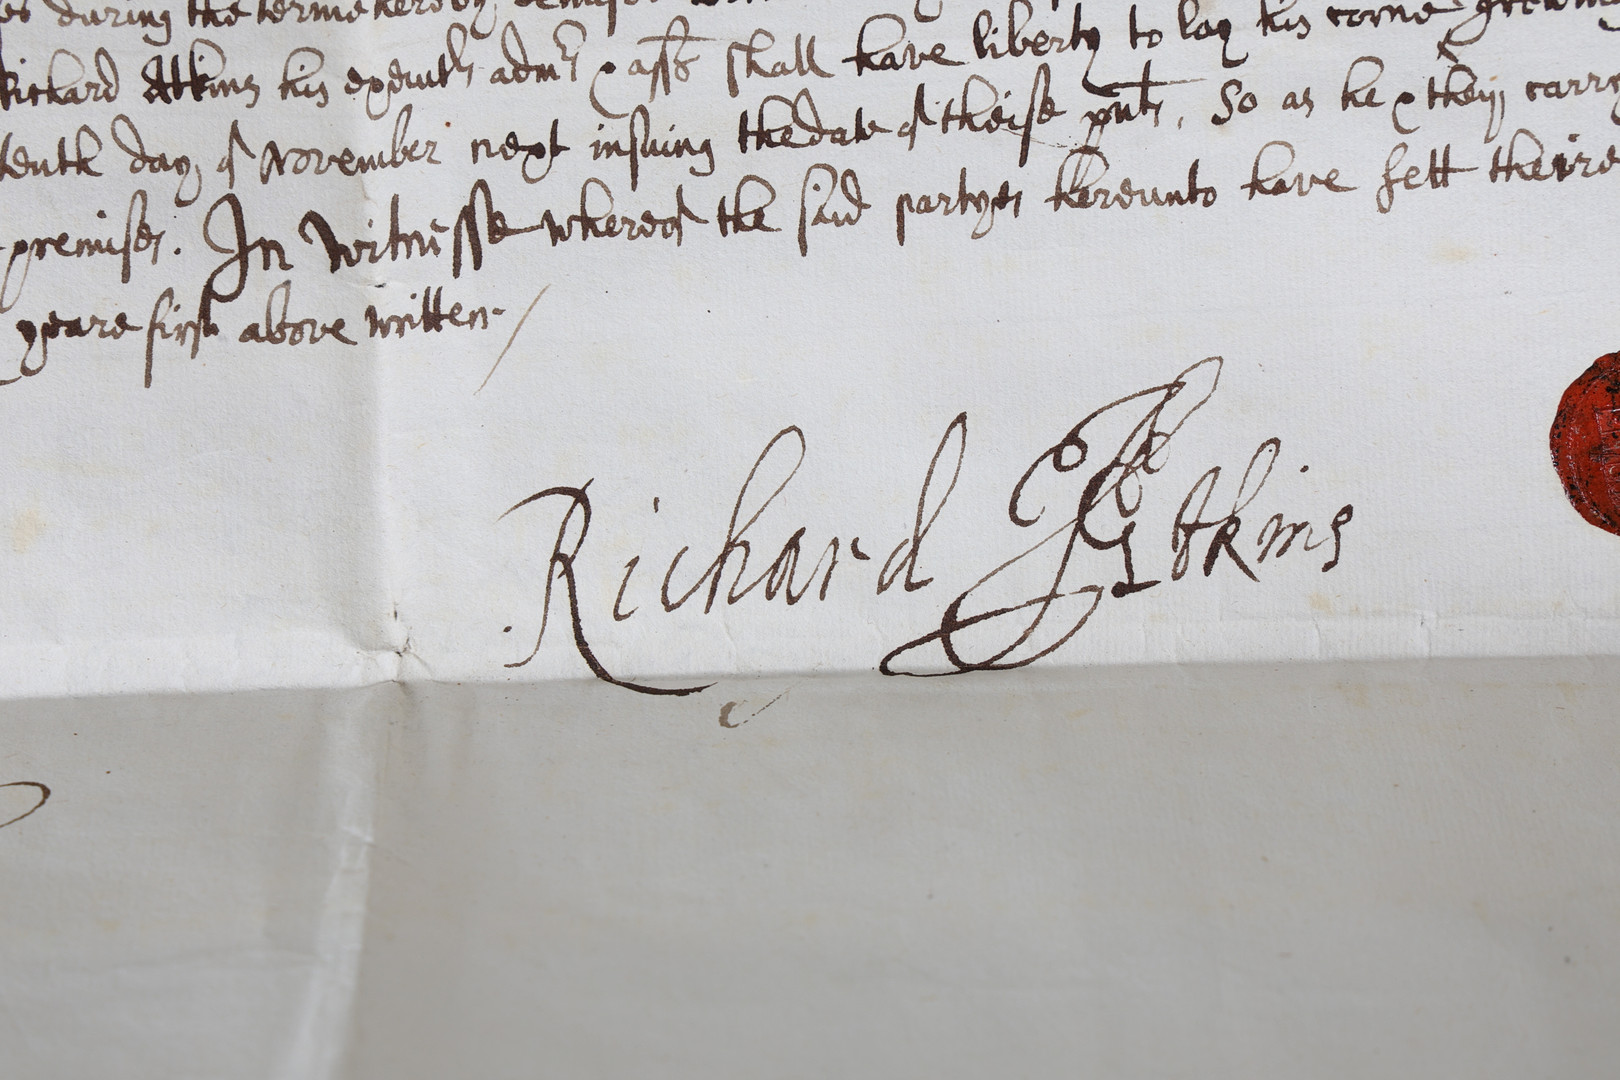 during the terme hereby demised
Richard Atkins his execut:rs adm:rs & ass:s shall have liberty to lay his corne growing
tenth day of November next insuing the date of theise p:nts, So as he & they carry
premises. In Witnesse whereof the said partyes hereunto have sett theire
yeare first above written
Richard Atkins